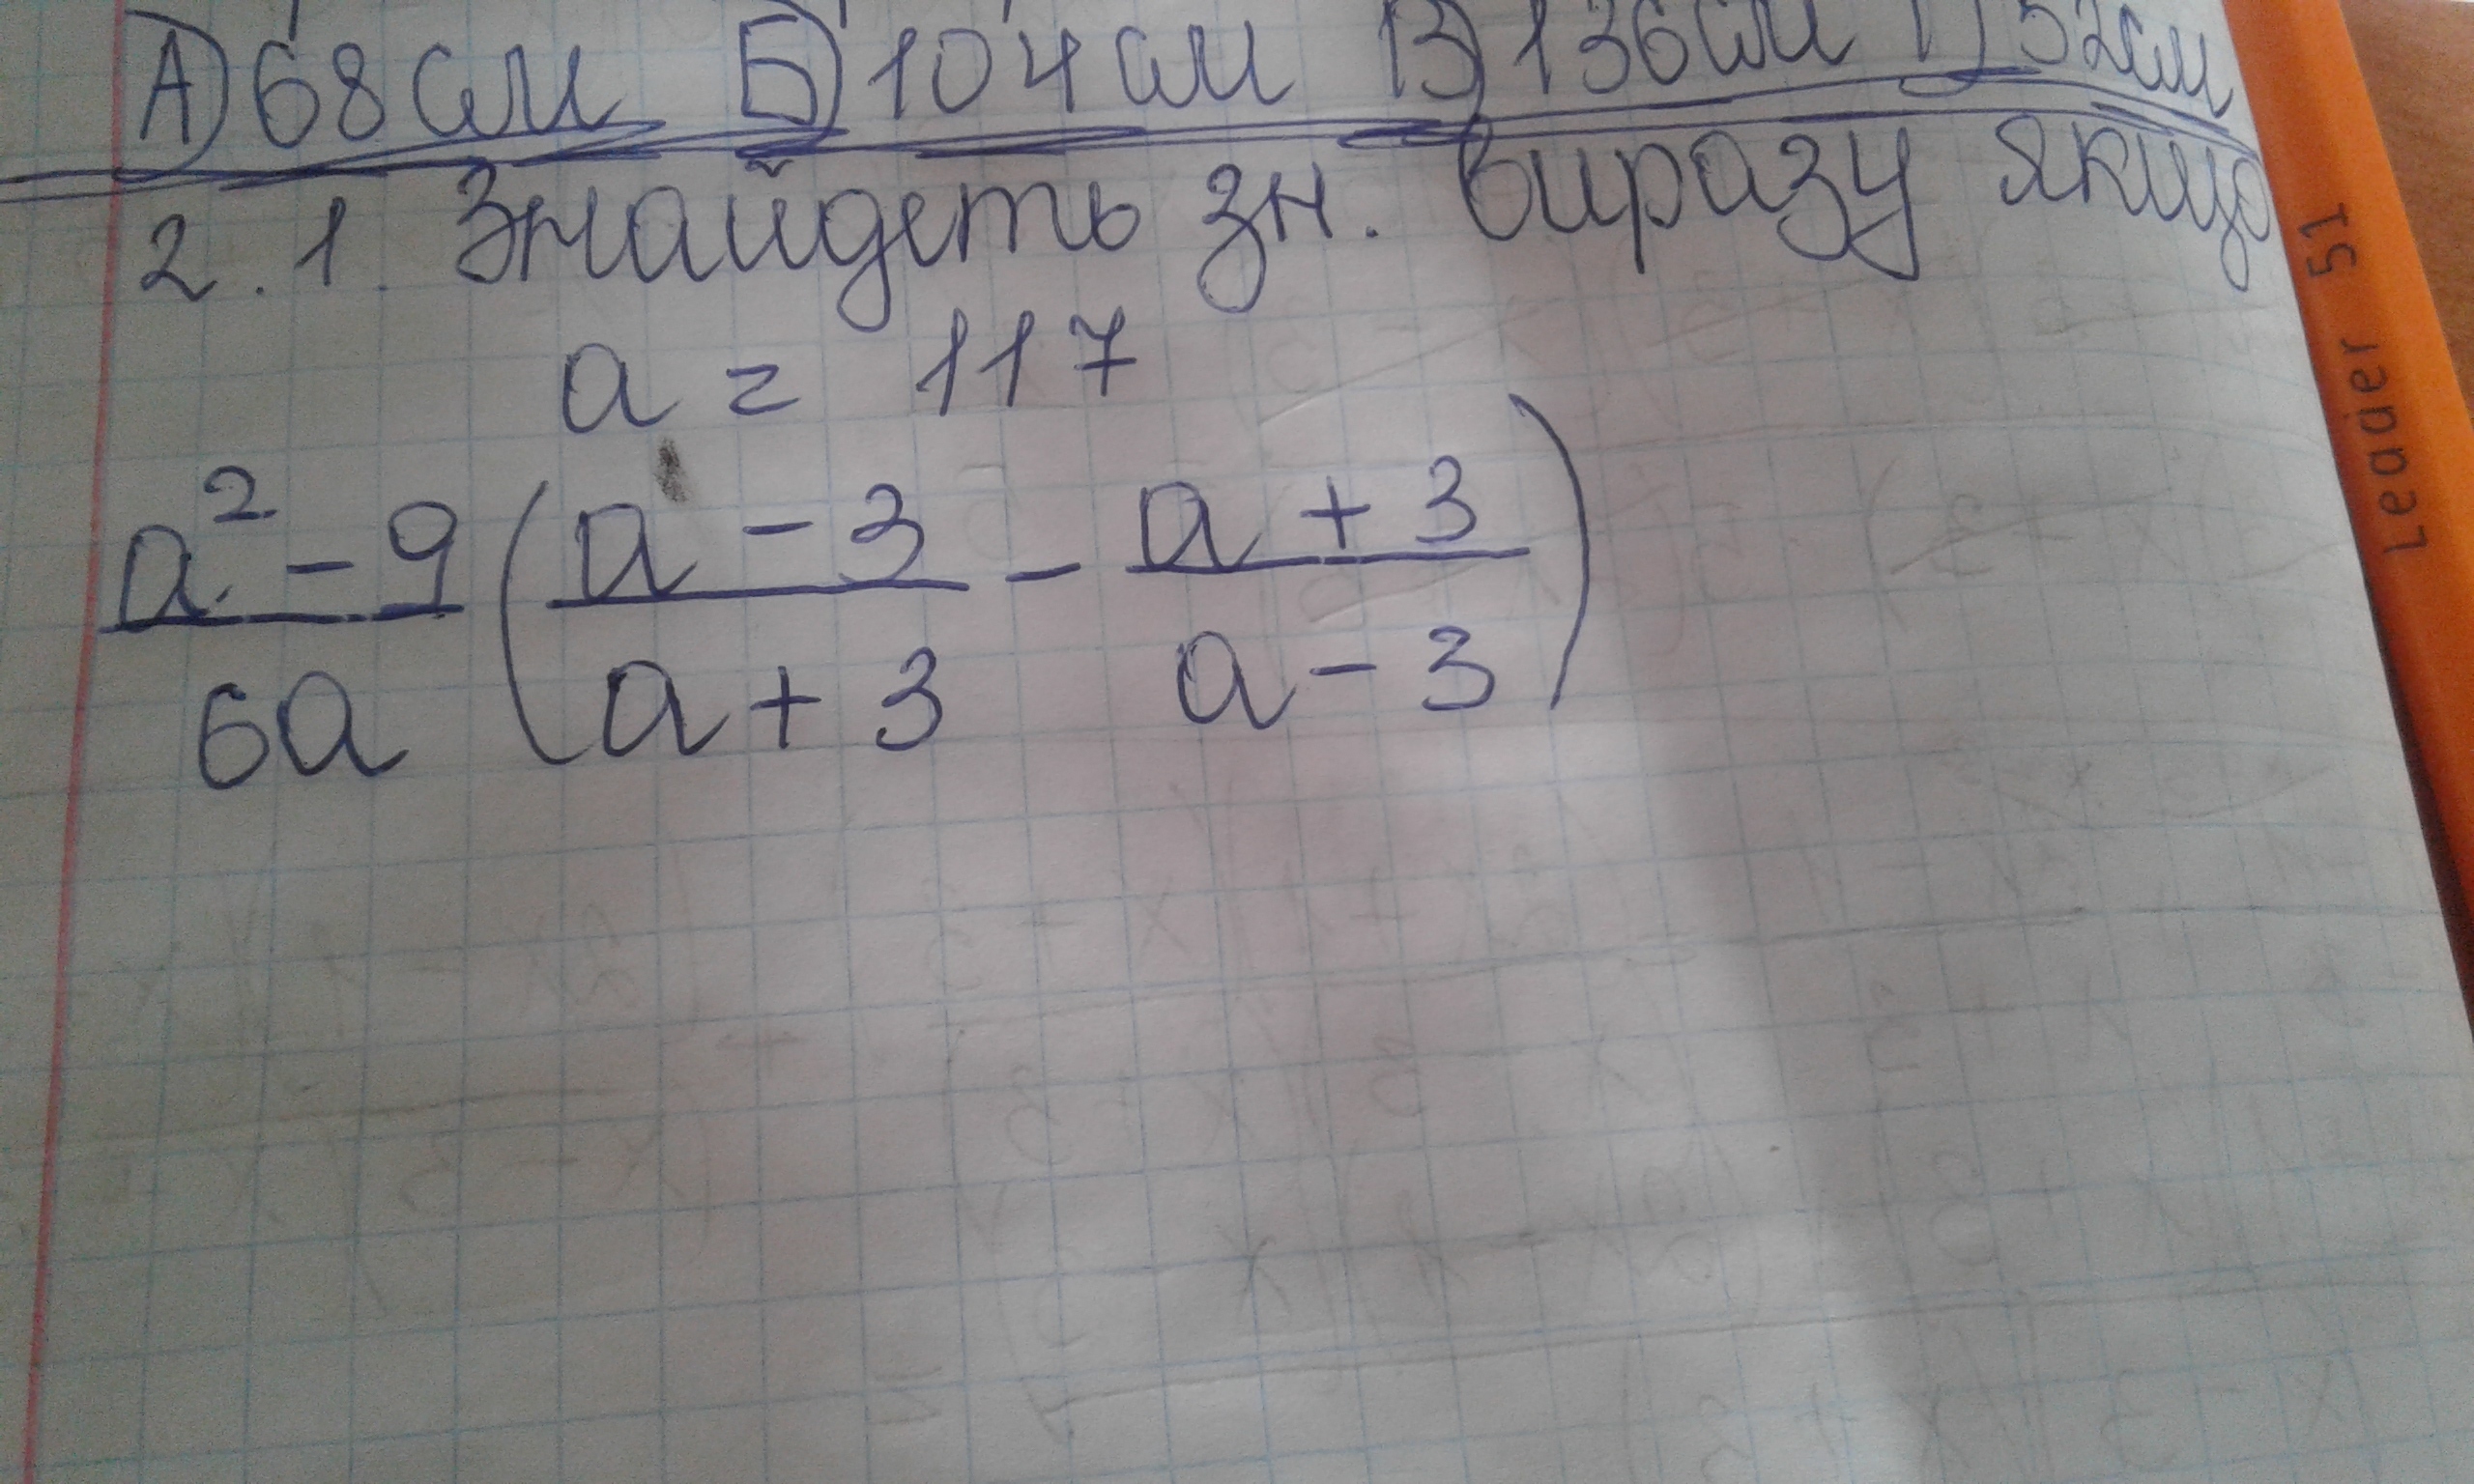 А) 68 см Б) 104 см В) 136 см Г) 52 см
2.1. Знайдеть зн. виразу якщо
a = 117
a² - 9 / 6a ( a - 3 / a + 3 - a + 3 / a - 3 )
Leader 51